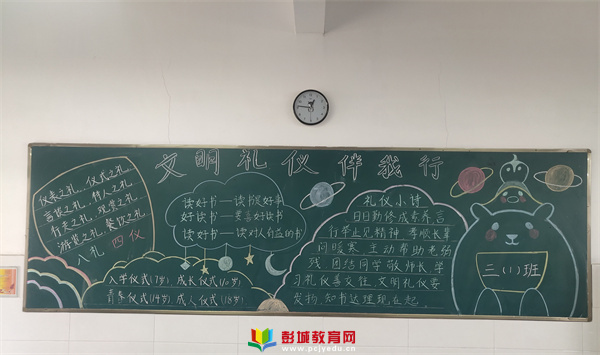 文明礼仪伴我行
仪表之礼、仪式之礼、
言谈之礼、待人之礼、
行走之礼、观赏之礼、
游览之礼、餐饮之礼
八礼 四仪
读好书——读书是好事
好读书——要喜好读书
读好书——读对人有益的书
入学仪式(7岁)、成长仪式(10岁)
青春仪式(14岁)、成人仪式(18岁)
礼仪小诗
日日勤修成素养 言
行举止见精神 尊顺长辈
问暖寒 主动帮助老伤
残 团结同学敬师长 学
习礼仪善交往 文明礼仪要
发扬 知书达理现在起
三(1)班
彭城教育网
www.pcjyedu.cn